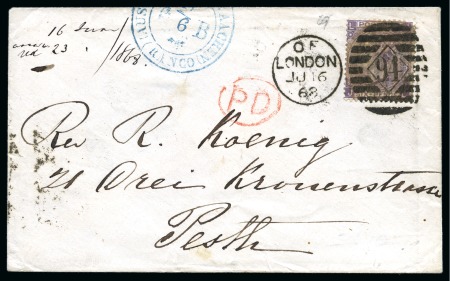 16 June
23
1868
6 B
FRANCO
PD
LONDON
JU 16
68
94
Rev R. Koenig
21 Drei Kronenstrasse
Pesth